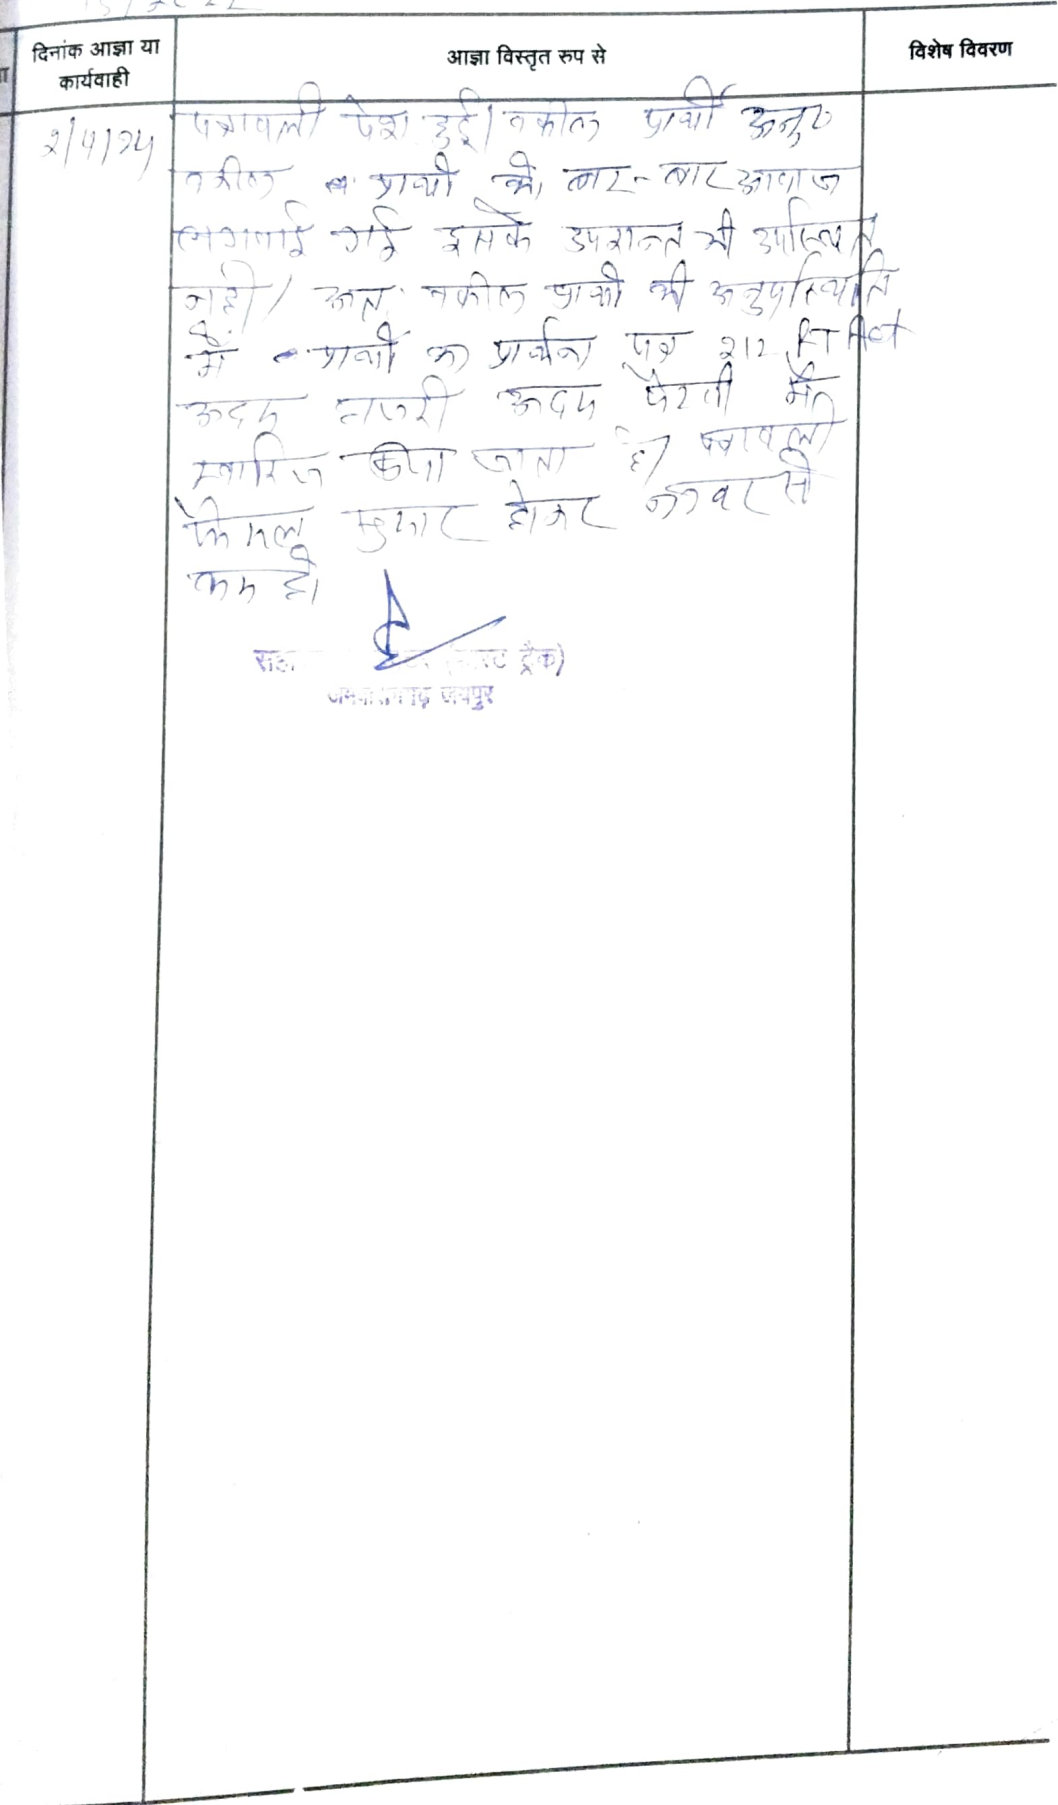 दिनांक आज्ञा या
कार्यवाही
आज्ञा विस्तृत रुप से
विशेष विवरण
पत्रावली पेश हुई। वकील प्रार्थी अनु०
वकील व प्रार्थी को बार-बार आवाज
लगवाई गई इसके उपरान्त भी उपस्थित
नही। अतः वकील प्रार्थी की अनुपस्थिति
में प्रार्थी का प्रार्थना पत्र 212 RT Act
अदम हाजरी अदम पैरवी में
खारिज किया जाता है। पत्रावली
फैसल शुमार होकर नम्बर से
कम हो।
(फास्ट ट्रैक)
जमवारामगढ़ जयपुर